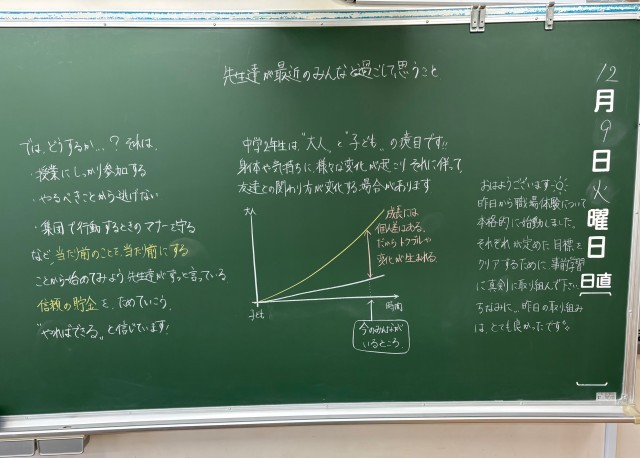 先生達が最近のみんなと過ごして思うこと
12
月
9
日
火
曜
日
日直
おはようございます
昨日から職場体験について
本格的に始動しました。
それぞれが定めた目標を
クリアするために、事前学習
に真剣に取り組んで下さい
ちなみに…昨日の取り組み
は、とても良かったです
中学2年生は、"大人"と"子ども"の境目です!!
身体や気持ちに様々な変化が起こり、それに伴って
友達との関わり方が変化する場合があります
大人
成長には
個人差がある。
だからトラブルや
変化が生まれる。
子ども
時間
今のみんなが
いるところ。
では、どうするか…?それは、
・授業にしっかり参加する
・やるべきことから逃げない
・集団で行動するときのマナーを守る
など、当たり前のことを、当たり前にする
ことから始めてみよう。先生達がずっと言っている
信頼の貯金を、ためていこう。
"やればできる"と信じています!